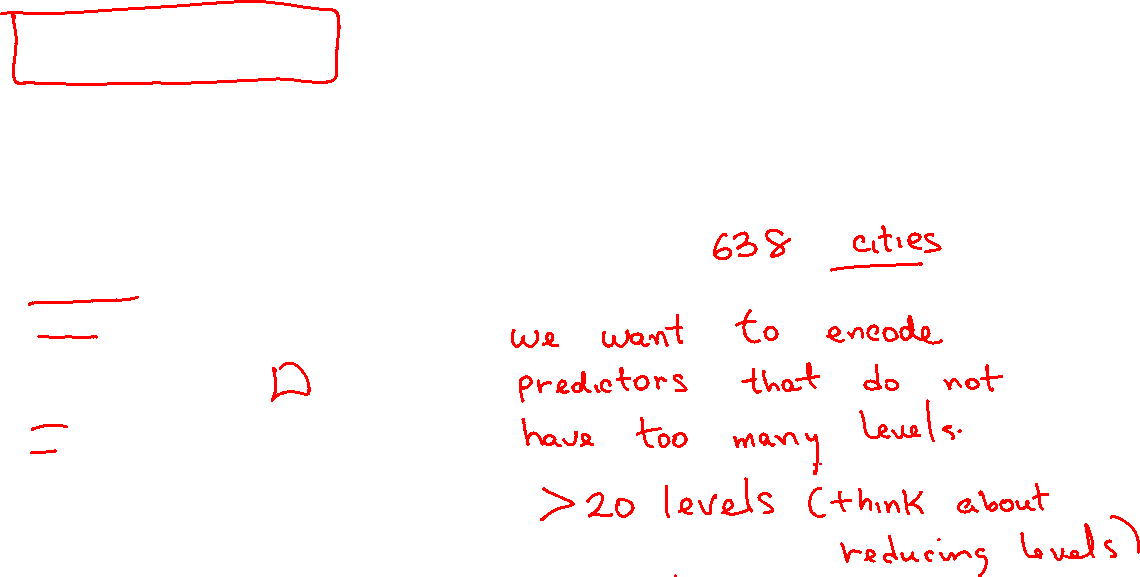 638 cities
we want to encode
predictors that do not
have too many levels.
>20 levels (think about
reducing levels)